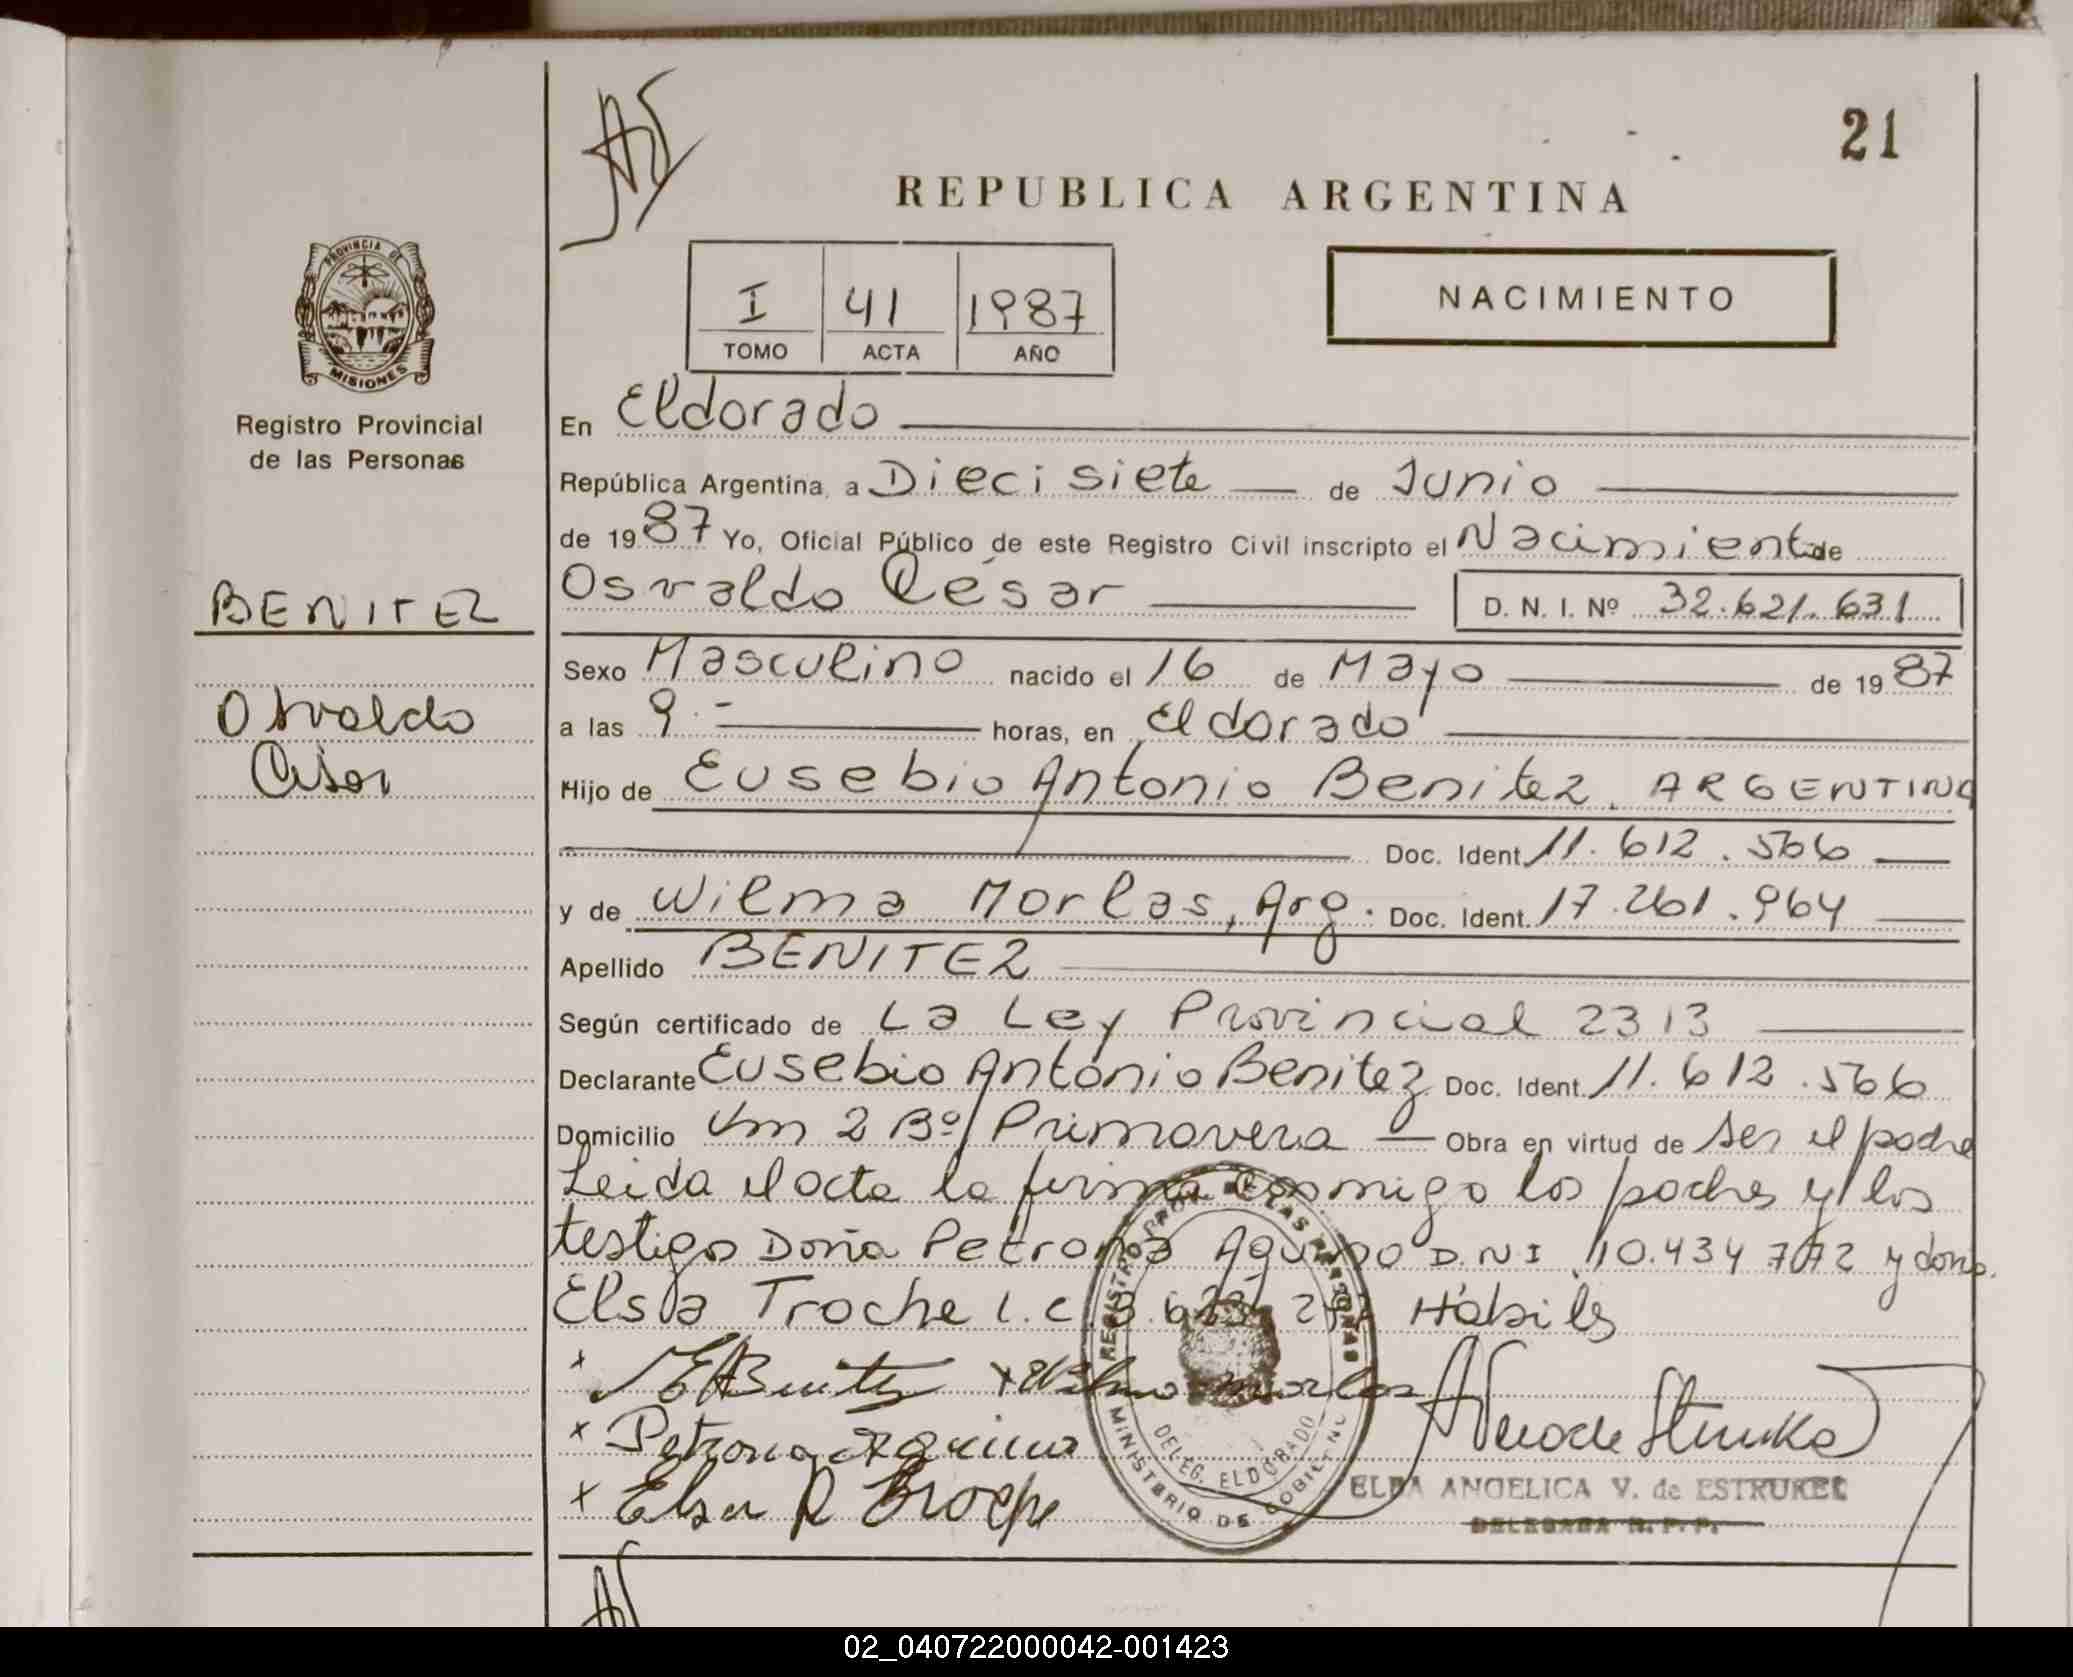 21
REPUBLICA ARGENTINA
PROVINCIA DE
MISIONES
Registro Provincial
de las Personas
I 41 1987
TOMO ACTA AÑO
NACIMIENTO
En Eldorado
República Argentina, a Dieci siete de Junio
de 1987 Yo, Oficial Público de este Registro Civil inscripto el Nacimiento de
BENITEZ
Osvaldo César D. N. I. Nº 32.621.631
Sexo Masculino nacido el 16 de Mayo de 1987
Osvaldo
Cesar
a las 9.- horas, en Eldorado
Hijo de Eusebio Antonio Benitez. ARGENTINO
Doc. Ident. 11.612.566
y de Wilma Morlas, Arg. Doc. Ident. 17.261.964
Apellido BENITEZ
Según certificado de La Ley Provincial 2313
Declarante Eusebio Antonio Benitez Doc. Ident. 11.612.566
Domicilio Km 2 Bº Primavera Obra en virtud de ser el padre
Leida el acta la firma conmigo los padres y los
testigo Doña Petrona Aquino D.N.I. 10.434.772 y doña
Elsa Troche L.C. Habiles
x EABenitez x Wilma Morlas
x Petrona Aquino
x Elsa R Troche
REGISTRO PROV. DE LAS PERSONAS
DELEG. ELDORADO
MINISTERIO DE GOBIERNO
ELDA ANGELICA V. de ESTRUKEL
DELEGADA R. P. P.
02_040722000042-001423